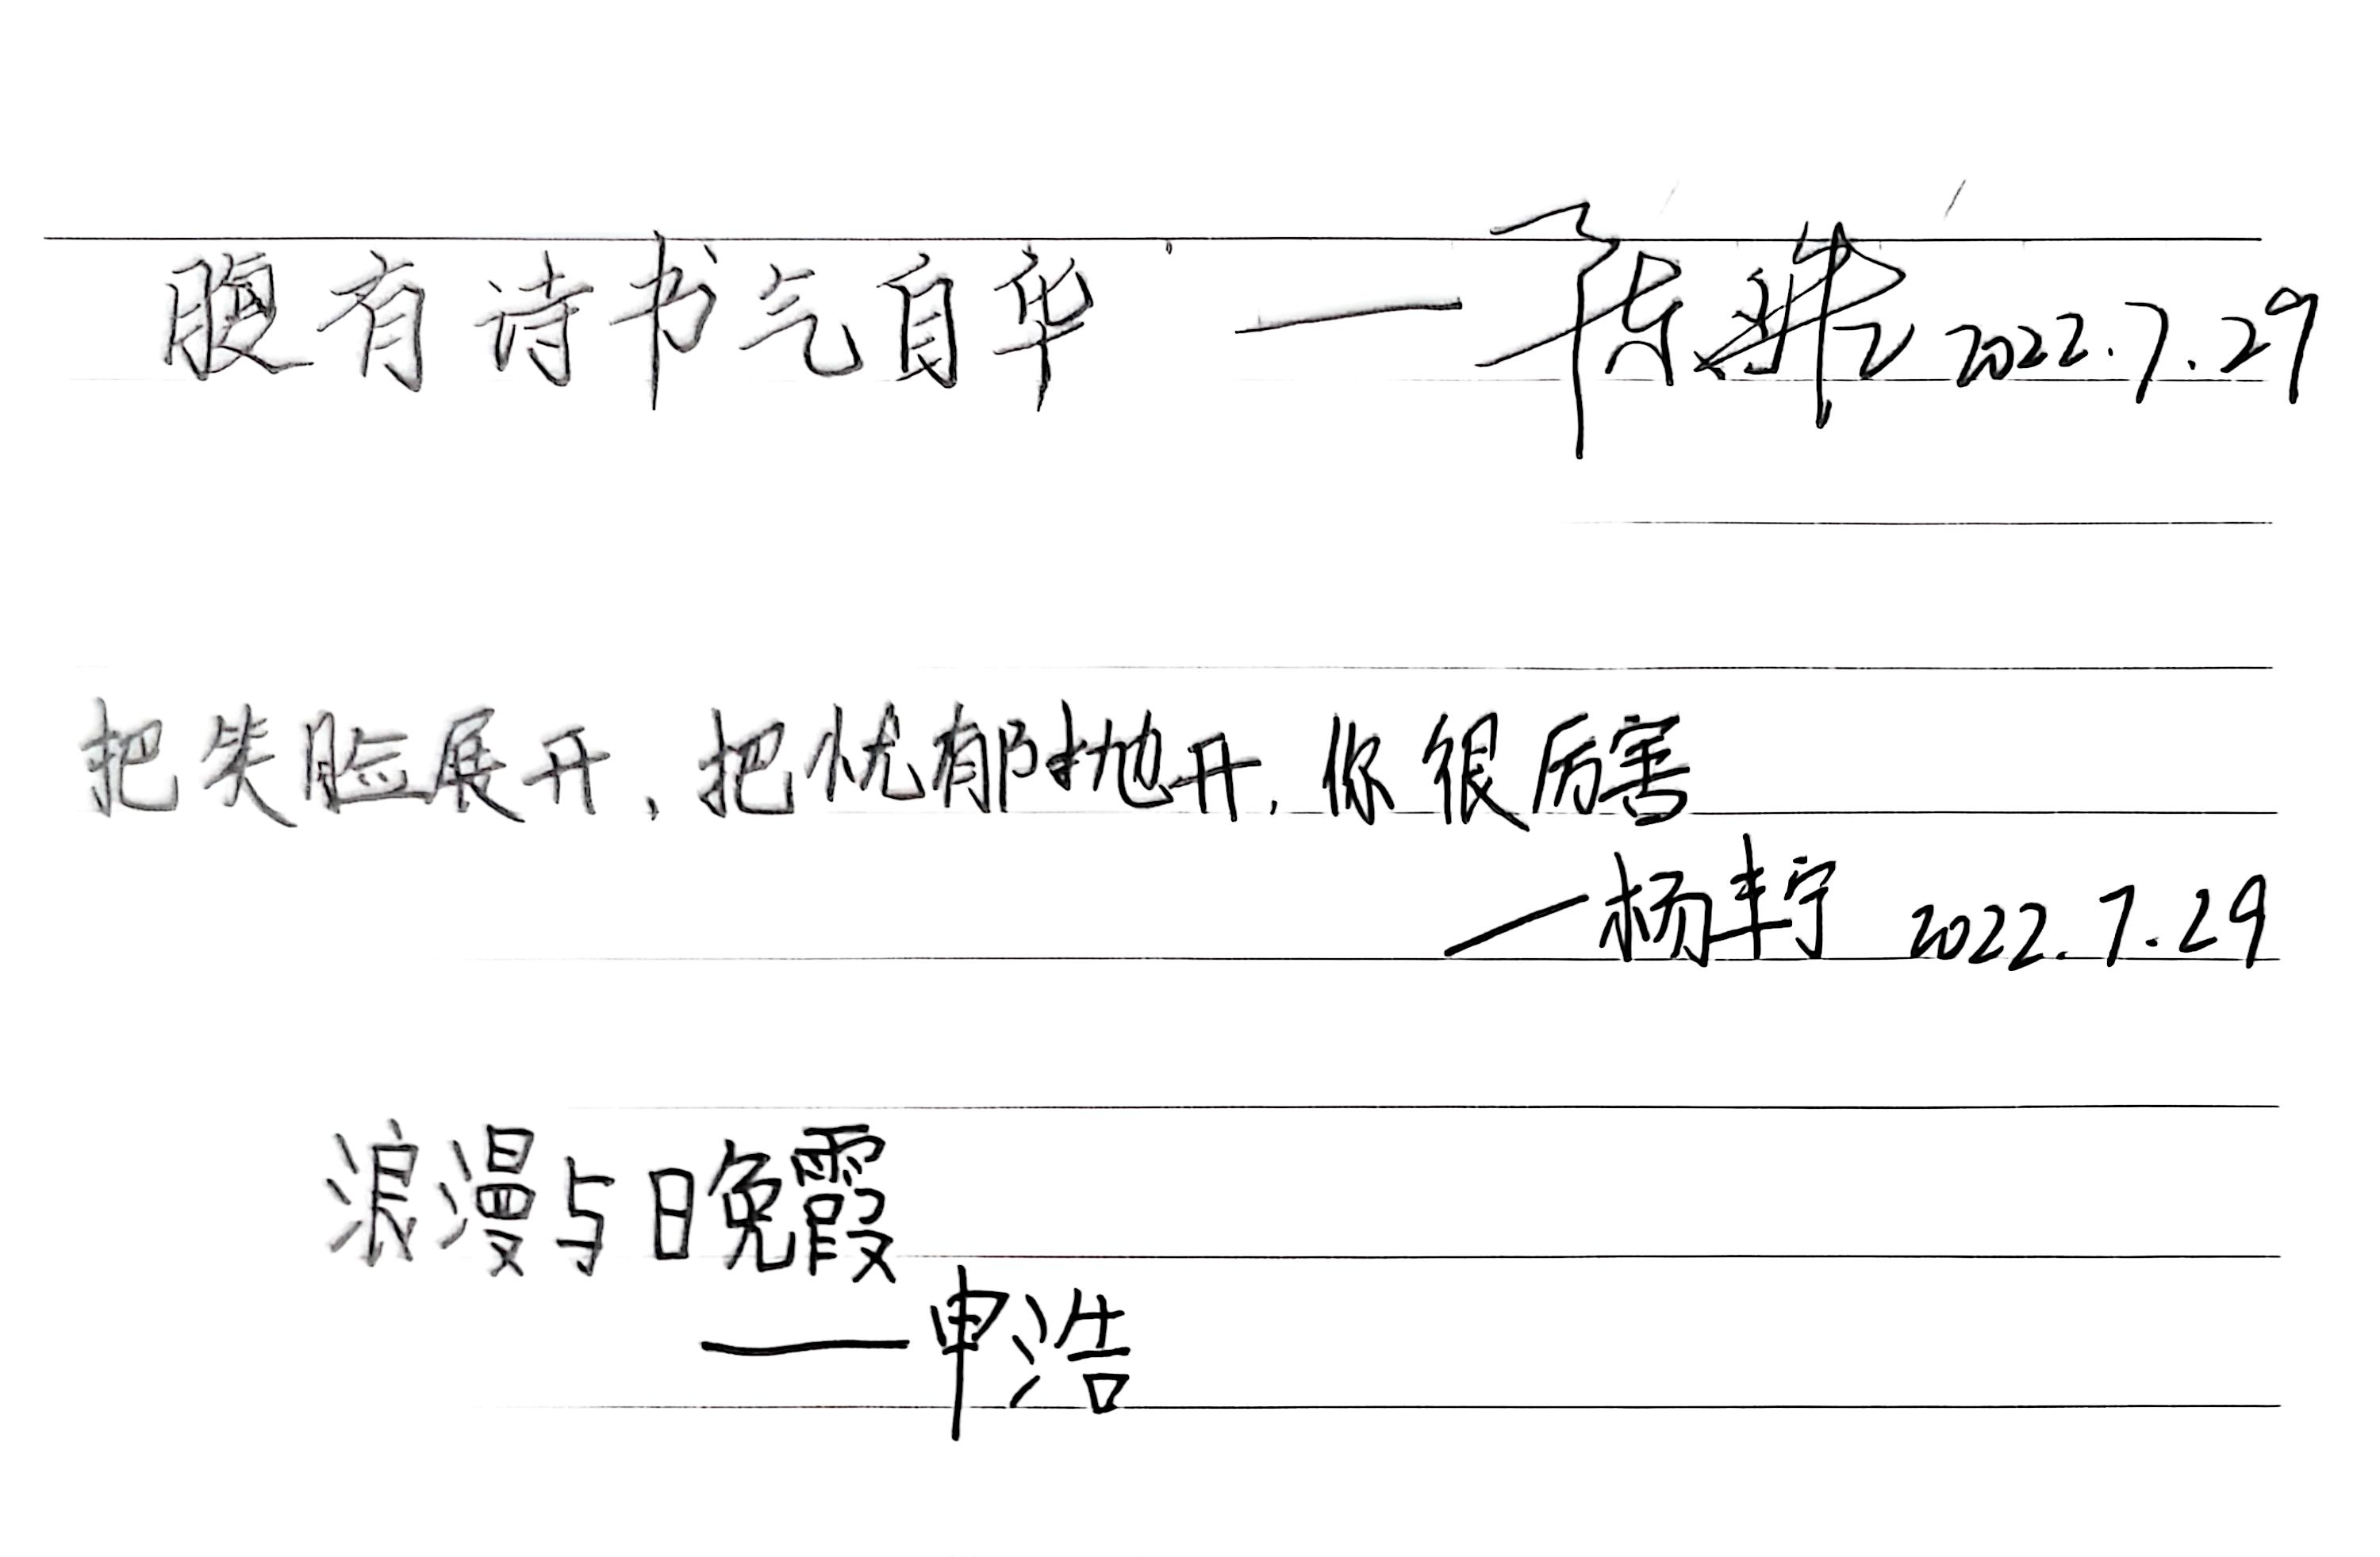 腹有诗书气自华 —— 2022.7.29
把笑脸展开,把忧郁抛开,你很厉害
—杨丰宁 2022.7.29
浪漫与晚霞
——申浩